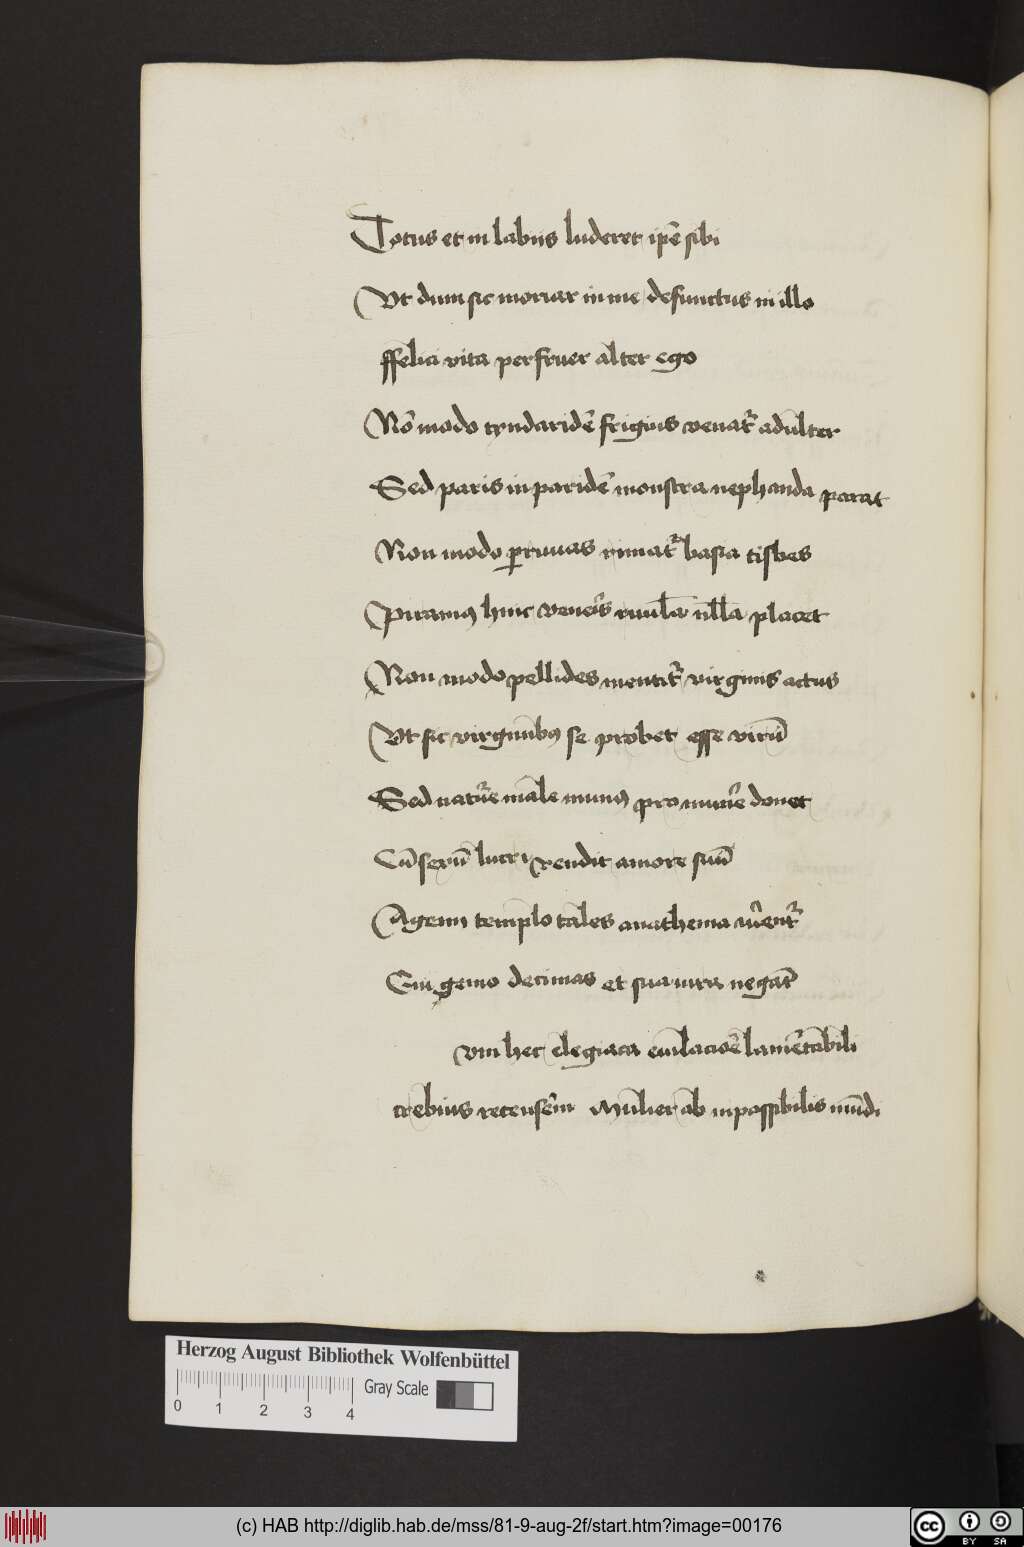 Totus et in labiis luderet ipē sibi
Vt dum sic moriar in me defunctus in illo
ffelici vita perfruer alter ego
Nō modo tyndaridē frigius venat᷑ adulter
Sed paris in paridē monstra nephanda parat
Non modo ꝑ rimas rimat᷑ basia tisbes
Piramꝰ huic veneris rimula nulla placet
Non modo pellides mentit᷑ virginis actus
Vt sic virginibꝰ se probet esse virū
Sed nature male munꝰ pro munere donet
Cū sexū lucri vendit amore suū
A genii templo tales anathema merent᷑
Qui genio decimas et sua iura negāt
vm hec elegiaca lamētabili
crebius recenserem Mulier ab inpassibilis mūdi
Herzog August Bibliothek Wolfenbüttel
Gray Scale
0 1 2 3 4
(c) HAB http://diglib.hab.de/mss/81-9-aug-2f/start.htm?image=00176
cc BY SA